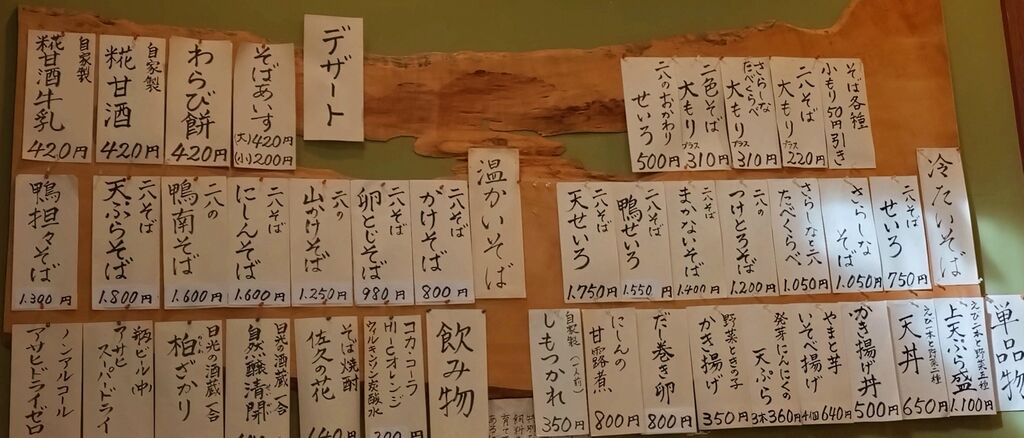 冷たいそば
二八そば
せいろ
750円
さらしな
そば
1.050円
さらしなと二八
たべくらべ
1.050円
二八の
つけとろそば
1.200円
二八そば
まかないそば
1.400円
二八そば
鴨せいろ
1.550円
二八そば
天せいろ
1.750円
そば各種
小もり50円引き
二八そば
大もり
プラス
220円
さらしな
たべくらべ
大もり
プラス
310円
二色そば
大もり
プラス
310円
二八のおかわり
せいろ
500円
温かいそば
二八そば
かけそば
800円
二八そば
卵とじそば
980円
二八の
山かけそば
1.250円
二八そば
にしんそば
1.600円
二八の
鴨南そば
1.600円
二八そば
天ぷらそば
1.800円
鴨担々そば
1.300円
デザート
そばあいす
(大)420円
(小)200円
わらび餅
420円
自家製
糀甘酒
420円
自家製
糀甘酒牛乳
420円
単品物
えび一本と野菜三種
上天ぷら盛
1.100円
えび一本と野菜二種
天丼
650円
かき揚げ丼
500円
やまと芋
いそべ揚げ
4個640円
発芽にんにくの
天ぷら
3本360円
野菜ときの子
かき揚げ
350円
だし巻き卵
800円
にしんの
甘露煮
800円
自家製(一人前)
しもつかれ
350円
飲み物
コカ・コーラ
Hi-Cオレンジ
ウィルキンソン炭酸水
そば焼酎
佐久の花
日光の酒蔵 一合
自然醸清開
日光の酒蔵 一合
柏ざかり
瓶ビール(中)
アサヒ
スーパードライ
ノンアルコール
アサヒドライゼロ